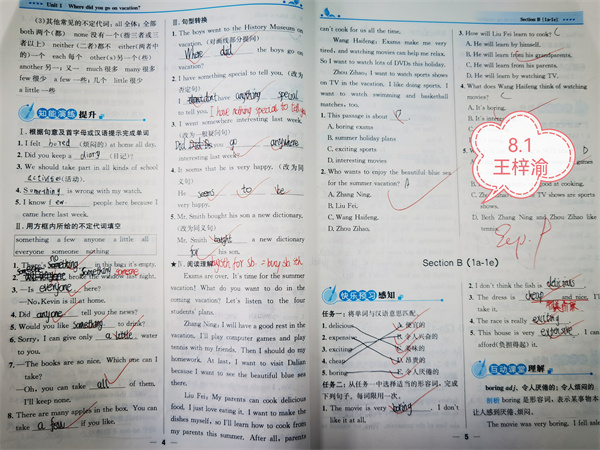 Unit 1 Where did you go on vacation?
(3)其他常见的不定代词: all 全体; 全部
both 两个(都) none 没有一个(指三者或三
者以上) neither(二者)都不 either(两者中
的)一个 each 每个 other(s)另一个(些)
another(s)又一 much 很多 many 很多
few 很少 a few 一些; 几个 little 很少
a little 一些
知能演练 提升
Ⅰ. 根据句意及首字母或汉语提示完成单词
1. I felt bored (烦闷的) at home all day.
2. Did you keep a diary (日记)?
3. We should take part in all kinds of school
activities(活动).
4. Something is wrong with my watch.
5. I know few people here because I
came here last week.
Ⅱ. 用方框内所给的不定代词填空
something a few anyone a little all
everyone someone nothing
no
1. There's something in the bag; it's empty.
2. Something someone broke the window last night.
3. —Is everyone here?
—No, Kevin is ill at home.
4. Did anyone tell you the news?
5. Would you like something to drink?
6. Sorry, I can give only a little water
to you.
7. —The books are so nice. Which one can I
take?
—Oh, you can take all of them.
I'll keep none.
8. There are many apples in the box. You can
take a few if you like.
4
Ⅲ. 句型转换
1. The boys went to the History Museum on
vacation. (对画线部分提问)
Where did the boys go on
vacation?
2. I have something special to tell you. (改为
否定句)
I don't have anything special
to tell you. I have nothing special to tell you
3. I went somewhere interesting last week.
(改为一般疑问句)
Did you go anywhere
interesting last week?
4. It seems that he is very happy. (改为同
义句)
He seems to be
very happy.
5. Mr. Smith bought his son a new dictionary.
(改为同义句)
Mr. Smith bought a new dictionary
for his son.
buy sth for sb = buy sb sth
Ⅳ. 阅读理解
Exams are over. It's time for the summer
vacation! What do you want to do in the
coming vacation? Let's listen to the four
students' plans.
Zhang Ning: I will have a good rest in the
vacation. I'll play computer games and play
tennis with my friends. Then I should do my
homework. At last, I want to visit Dalian
because I want to see the beautiful blue sea
there.
Liu Fei: My parents can cook delicious
food. I just love eating it. I want to make the
dishes myself, so I'll learn how to cook from
my parents this summer. After all, parents
Section B (1a-1e)
can't cook for us all the time.
Wang Haifeng: Exams make me very
tired, and watching movies can help me relax.
So I want to watch lots of DVDs this holiday.
Zhou Zihao: I want to watch sports shows
on TV in the vacation. I like doing sports. I
want to watch swimming and basketball
matches, too.
1. This passage is about B
A. boring exams
B. summer holiday plans
C. exciting sports
D. interesting movies
2. Who wants to enjoy the beautiful blue sea
for the summer vacation? A
A. Zhang Ning.
B. Liu Fei.
C. Wang Haifeng.
D. Zhou Zihao.
3. How will Liu Fei learn to cook? C
A. He will learn by himself.
B. He will learn from his grandparents.
C. He will learn from his parents.
D. He will learn by watching TV.
4. What does Wang Haifeng think of watching
movies? C
A. It's boring.
B. It's
8.1
王梓渝
D. Both Zhang Ning and Zhou Zihao like
tennis.
Section B (1a-1e)
快乐预习 感知
任务一: 将单词与汉语意思匹配。
1. delicious A. 便宜的
2. expensive B. 令人兴奋的
3. exciting C. 美味的
4. cheap D. 昂贵的
5. boring E. 令人厌倦的
任务二: 从任务一中选择适当的形容词, 完成
下列句子, 每词限用一次。
1. The movie is very boring. I don't
like it at all.
2. I don't think the fish is delicious.
3. The dress is cheap and nice. I'll
take it.
4. The race is really exciting.
5. This house is very expensive. I can't
afford(负担得起) it.
互动课堂 理解
boring adj. 令人厌倦的; 令人烦闷的
剖析 boring 是形容词, 表示某事物本
让人感到厌倦、烦闷。
The movie was very boring. I fell asl
5